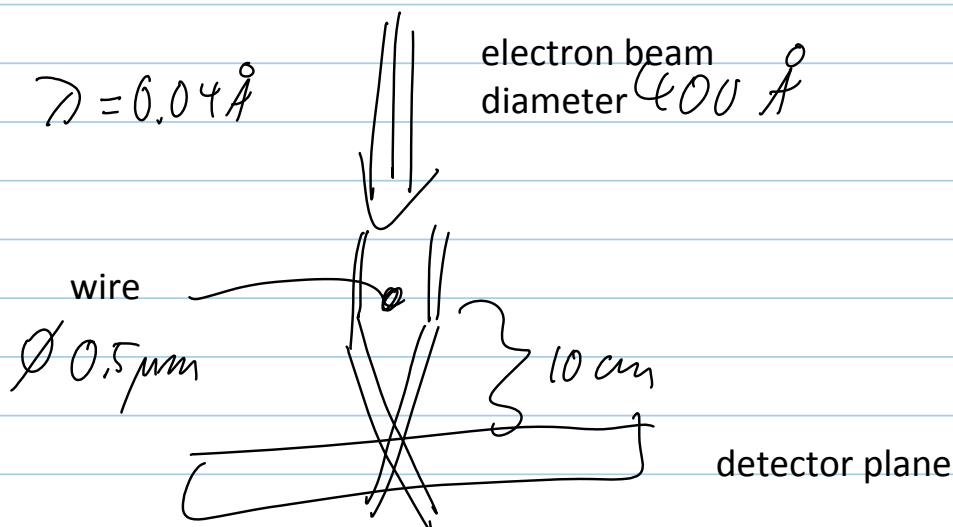 λ = 0.04 Å
electron beam
diameter 400 Å
wire
Ø 0.5 μm
10 cm
detector plane